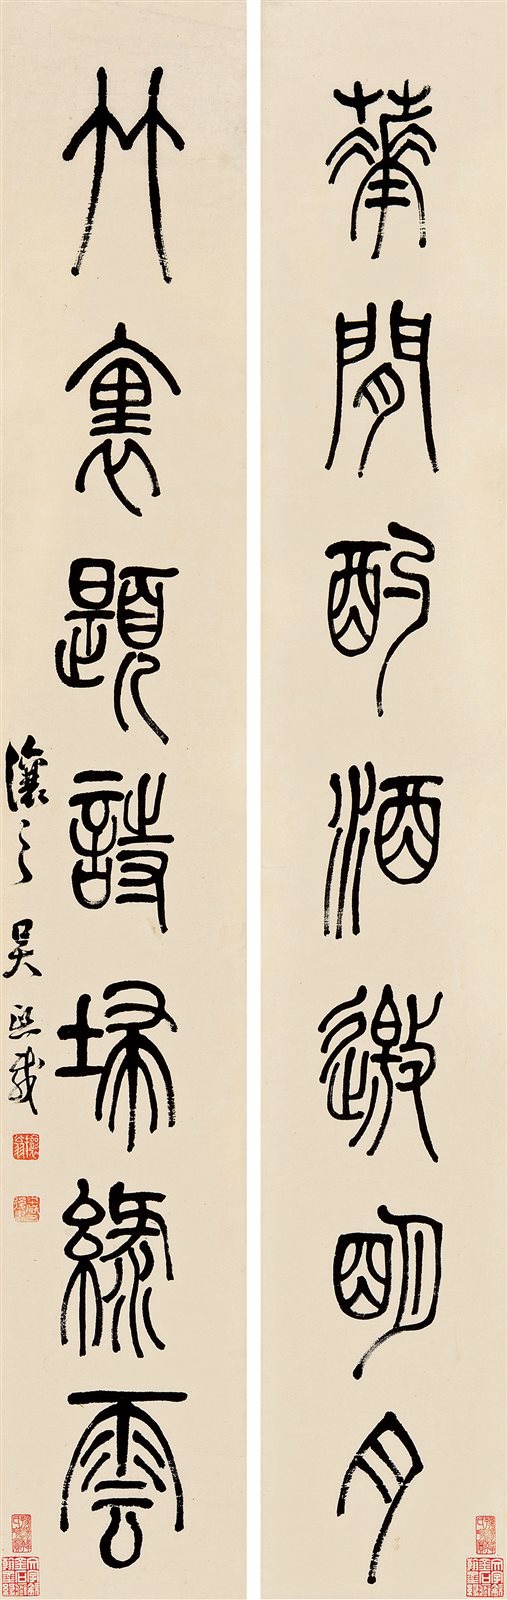 華閒酌酒邀明月
竹裏題詩埽綠雲
讓之吳熙載